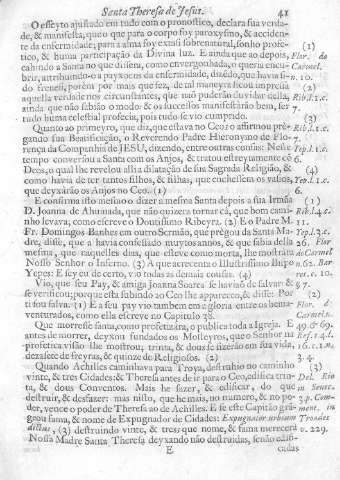 Santa Theresa de Jesus. 41
O effeyto ajustado em tudo com o pronostico, declara sua verda-
de, & manifesta, que o que para o corpo foy paroxysmo, & acciden-
te da enfermidade, para a alma foy extasi sobrenatural, sonho profe-
tico, & huma participação da Divina luz. E ainda que ao depois,
cahindo a Santa no que dissera, como envergonhada, o queria encu-
brir, attribuindo-o a payxoens da enfermidade, dizendo, que havia si-
do frenesi, porém por mais que fez, de tal maneyra ficou impressa
aquella verdade nos circunstantes, que não puderão duvidar então,
ainda que não sabião o modo: & os successos manifestàrão bem, ser
tudo huma celestial profecia, pois tudo se vio cumprido.
Quanto ao primeyro, que diz, que estava no Ceo: o affirmou prè-
gando sua Beatificação, o Reverendo Padre Hieronymo de Flo-
rença da Companhia de JESU, dizendo, entre outras cousas: Neste
tempo conversou a Santa com os Anjos, & tratou estreytamente cõ
Deos, o qual lhe revelou alli a dilatação de sua Sagrada Religião, &
como havia de ter tantos filhos, & filhas, que enchessem os vazios,
que deyxàrão os Anjos no Ceo. (1)
E confirma isto mesmo o dizer a mesma Santa depois a sua Irmãa
D. Joanna de Ahumada, que não quizera tornar cà, que bom cami-
nho levava, como escreve o Doutissimo Ribeyra. (2) E o Padre M.
Fr. Domingos Banhes em outro Sermão, que prègou da Santa Ma-
dre, disse, que a havia confessado muytos annos, & que sabia della
mesma, que naquelles dias, que esteve como morta, lhe mostrara
Nosso Senhor o Inferno. (3) A que accrecenta o Illustrissimo Bispo
Yepes: E sey eu de certo, vio todas as demais cousas. (4)
Vio, que seu Pay, & amiga Joanna Soares se havião de salvar: &
se verificou; porque esta subindo ao Ceo lhe appareceo, & disse: Por
ti sou salva. (1) E a seu pay vio tambem em a gloria entre os bema-
venturados, como ella escreve no Capitulo 38.
Que morresse santa, como profetizàra, o publica toda a Igreja. E
antes de morrer, deyxou fundados os Mosteyros, que o Senhor na
profetica visão lhe mostrou; trinta, & dous se fizerão em sua vida,
dezasete de freyras, & quinze de Religiosos. (2)
Quando Achilles caminhava para Troya, destruhio no caminho
vinte, & tres Cidades: & Theresa antes de ir para o Ceo, edifica trin-
ta, & dous Conventos. Mais he fazer, & edificar, do que
destruir, & desfazer: mas nisto, que he mais, no numero, & no po-
der, vence o poder de Theresa ao de Achilles. E se este Capitão gràn-
geou fama, & nome de Expugnador de Cidades: Expugnator urbium
dictus, (3) destruindo vinte, & tres: que nome, & fama merecerà
Nossa Madre Santa Theresa deyxando não destruidas, senão edifi-
E cadas
(1)
Flor. do
Carmel.
n. 10.
(2)
Rib. l. 1. c.
7.
(1)
Rib. l. 1. c.
7.
Yep. l. 1. c.
6.
(2)
Rib. l. 4. c.
11.
Yep. l. 3. c.
26. Flor
do Carmel
(1)
(2)
Flor. do
Carmel. n.
49. & 69.
Ref. t. 1. l.
3. 4.
(3)
Del Rio
in Senec.
Troades
v. 229.